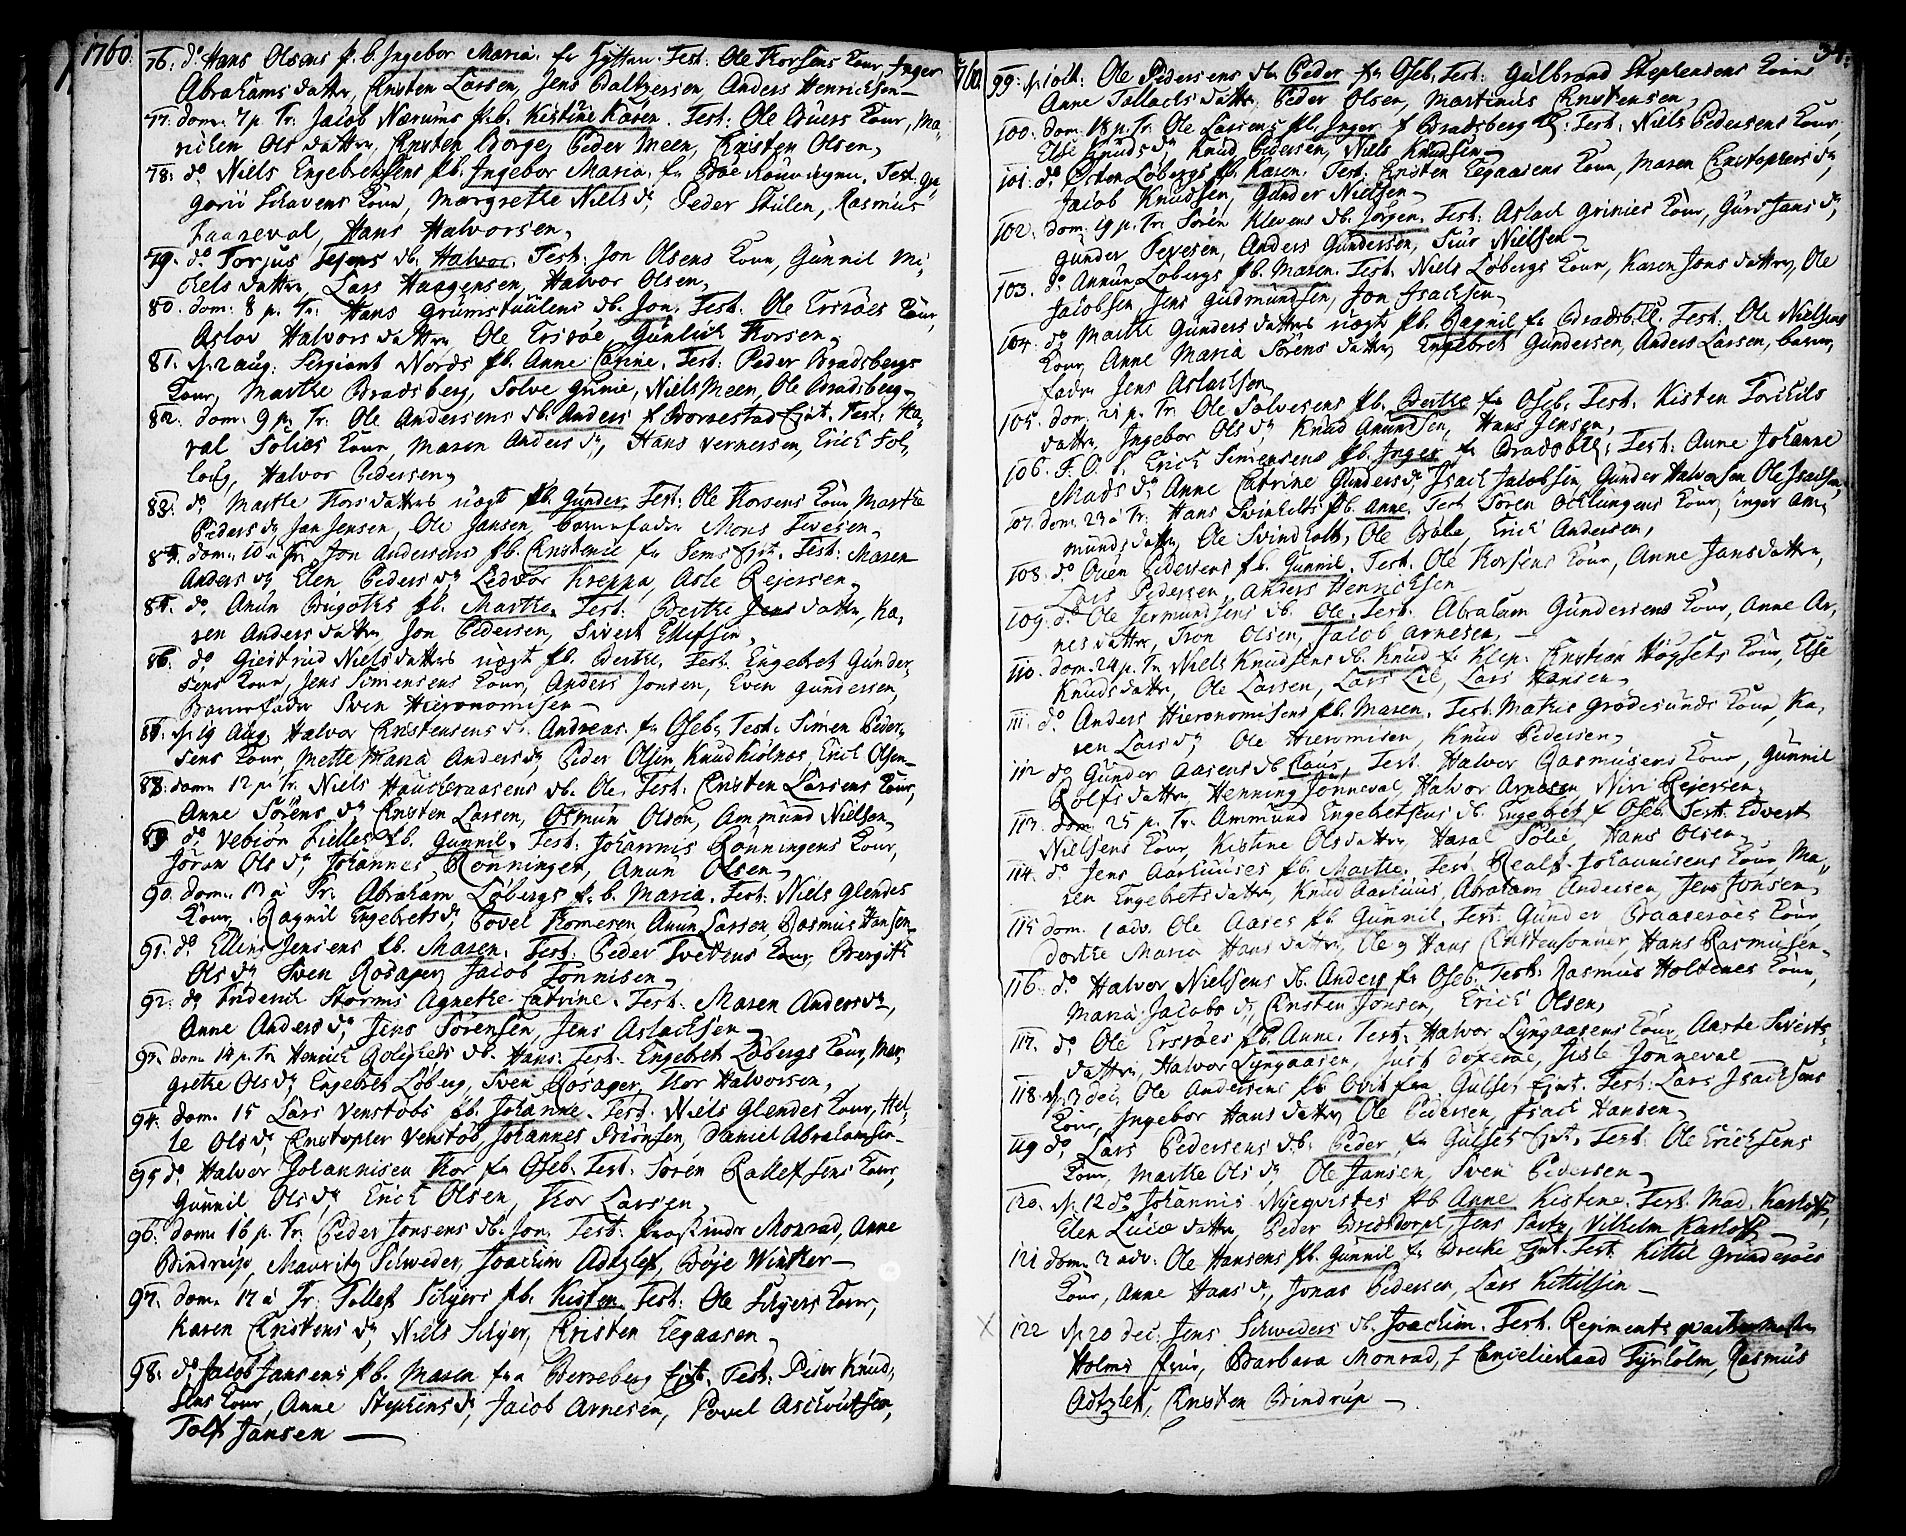 1760.
76. do Hans Olsens p. b. Ingebor Maria. fr Test: Ole Thorsens Kone, Inger
Abrahams datter, Christen Larsen, Jens Baltzersen, Anders Henrichsen
77. dom. 7 p. Tr. Jacob Nærums p. b. Kistine Karen. Test: Ole Kone, Ma,
richen Ols datter, Christen Borge, Peder Meen, Christen Olsen,
78. do Niels Engebretsens p.b. Ingebor Maria. fr Test:
Kone, Margrethe Niels dr, Peder Stulen, Rasmus
Haaseval, Hans Halvorsen,
79. do Torjus db. Halvor. Test: Jon Olsens Kone, Gunnil Mi,
chels datter, Lars Haagensen, Halvor Olsen,
80. dom: 8 p. Tr: Hans Grumstuulens db. Jon. Test. Ole Ersröes Kone,
Aslov Halvors datter, Ole Ersröe, Gunlich Thorsen,
81. d. 2 aug: Sergiant Nords pb. Anne Catrine. Test: Peder Bradsbergs
Kone, Marthe Bradsberg, Solve Niels Meen, Ole Bradsberg
82. dom: 9 p. Tr. Ole Andersens db. Anders f. Borrestad Ejt. Test. Ha,
ral Solies Kone, Maren Anders dr, Hans Vernersen, Erich Sol,
Halvor Pedersen,
83. do Marthe Thors datters uægt pb. Gunder. Test: Ole Thorsens Kone, Marthe
Peders dr, Jan Jensen, Ole Jansen, barnefader Mons Tvetsen,
84. dom: 10 a Tr. Jon Andersens pb. Christenie fr Sems Ejt. Test: Maren
Anders dr, Elen Peders dr, Ledvor Kreppa, Asle Rejersen,
85. do Anun pb. Marthe. Test: Berthe Jens datter, Ka,
ren Anders datter, Jon Pedersen, Sivert Ellefsen,
86. do Giertrud Niels datters uægt pb. Berthe. Test: Engebret Gunder,
sens Kone, Jens Simensens Kone, Anders Jonsen, Even Gundersen,
Barnefader Sven Hieronomisen
87. d. 19 Aug. Halvor Christensens d. Andreas. fr Oseb. Test: Simen Peder,
sens Kone, Mette Maria Anders dr, Peder Olsen, Knud Kiölnes, Erich Olsen
88. dom 12 p. Tr. Niels db. Ole. Test: Christen Larsens Kone,
Anne Sörens dr, Christen Larsen, Osmun Olsen, Ammund Nielsen,
89. do Vebiör pb. Gunnil. Test: Johannis Rönningens Kone,
Joran Ols dr, Johannes Rönningen, Anun Olsen
90. dom. 13 a Tr: Abraham Löbergs p. b. Maria. Test: Niels Glendes
Kone, Ragnil Engebrets dr, Povel Thomesen, Anun Larsen, Rasmus Hansen
91. do Ellin Jensens pb. Maren. Test: Peder Tvetens Kone, Brergite
Ols dr, Sven Rosager, Jacob Tonnisen
92. do Friderich Storms Agnethe Catrine. Test: Maren Anders dr,
Anne Anders dr, Jens Sörensen, Jens Aslachsen
93. dom. 14 p. Tr. Henrich Roligheds db. Hans. Test. Engebret Löbergs Kone, Mar,
grethe Ols dr, Engebret Löberg, Sven Rosager, Thor Halvorsen,
94. dom. 15 Lars Venstöbs pb. Johanne. Test: Niels Glendes Kone, Hel,
le Ols dr, Christopher Venstöb, Johannes Daniel Abrahamsen
95 do Halvor Johannisen Thor fr Oseb. Test: Sören Rollefsens Kone,
Gunnil Ols dr, Erich Olsen, Thor Larsen,
96. dom. 16 p. Tr. Peder Jonsens db. Jon. Test: Monrad, Anne
Bindrup, Mauritz Schweder, Joachim Adtzlef, Böje Winther
97. dom. 17 a Tr. Tollef Schyers pb. Kisten. Test: Ole Schyers Kone,
Karen Christens dr, Niels Schyer, Christen Eegaasen
98. do Jacob Jansens pb. Maren fra Berreberg Ejt. Test: Peder Knud,
sens Kone, Anne Stephens dr, Jacob Arnesen, Povel
Tolf Jansen
1760 34.
99. d. 1 oct: Ole Pedersens db. Peder fr Oseb. Test: Gulbrand Stephensens Kone
Anne Tollachs datter, Peder Olsen, Martinus Christensen,
100. dom. 18 p. Tr. Ole Larsens pb. Inger f Bradsberg Test: Niels Pedersens Kone,
Else Knuds dr Knud Pedersen, Niels Knudsen
101. do Osten Löbergs pb. Karen. Test: Christen Eegaasens Kone, Maren Christophers dr,
Jacob Knudsen, Gunder Nielsen
102. dom. 19 p. Tr. Sören Klevens db. Jörgen. Test: Aslach Grinies Kone, Guri Jans dr,
Gunder Anders Gundersen, Siur Nielsen
103. do Annun Löbergs pb. Maren. Test. Niels Löbergs Kone, Karen Jons datter, Ole
Jacobsen Jens Gudmundsen, Jon Isachsen
104. do Marthe Gunders datters uægte pb. Ragnil fr Test: Ole Nielsens
Kone, Anne Maria Sörens datter, Engebret Gundersen, Anders Larsen, barne,
fader Jens Aslachsen
105. dom. 21 p. Tr. Ole Salvesens pb. Berthe fr Oseb. Test: Kisten Torchils
datter, Ingebor Ols dr, Knud Anundsen, Hans Jensen,
106. F.O.S. Erich Simensens pb. Inger fr Test: Anne Johanne
Mads dr, Anne Catrine Gunders dr, Isach Jacobsen, Gunder Halvorsen Ole Isachsen,
107. dom. 23 a Tr. Hans Svinholts pb. Anne. Test Sören Kone, Inger Am,
munds datter, Ole Svindholt, Ole Böle, Erich Andersen,
108. do Ouen Pedersens pb. Gunnil. Test. Ole Thorsens Kone, Anne Jansdatter,
Lars Pedersen, Anders Henrichsen
109. do Ole Jermundsens db. Ole. Test: Abraham Gundersens Kone, Anne Ar,
nes datter, Tron Olsen, Jacob Arnesen,
110. dom. 24 p. Tr. Niels Knudsens db. Knud fr Klep. Christian Högsets Kone, Else
Knuds datter, Ole Larsen, Lars Lie, Lars Hansen,
111. do Anders Hieronomisens pb. Maren. Test. Mathis Grödesunds Kone, Ka,
ren Lars dr, Ole Hieromisen, Knud Pedersen,
112 do Gunder Aasens db Claus. Test. Halvor Rasmusens Kone, Gunnil
Rolfs datter, Henning Jonneval, Halvor Arnesen, Niri Rejersen,
113. dom. 25 p. Tr. Ammund Engebretsens db. Engebret f Oseb. Test. Edvert
Nielsens Kone, Kistine Ols datter, Haral Solie, Hans Olsen,
114. do Jens Aarhuuses pb. Marthe. Test. Johannisens Kone, Ma,
ren Engebrets datter, Knud Aarhuus, Abraham Andersen, Jens Jonsen,
115 dom. 1 adv. Ole Aases pb. Gunnil. Test: Gunder Braaseröes Kone,
Dorthe Maria Hans datter, Ole og Hans Christensönner, Hans Rasmusen
116. do Halvor Nielsens db. Anders fr Oseb. Test: Rasmus Holtenes Kone,
Maria Jacobs dr, Christen Jonsen, Erich Olsen,
117. do Ole Ersröes pb. Anne. Test. Halvor Lyngaasens Kone, Aaste Siverts,
datter, Halvor Lyngaasen, Just Jonneval
118. d. 3 dec. Ole Andersens pb fra Gulset Ejt. Test: Lars Isachsens
Kone, Ingebor Hans datter, Ole Pedersen, Isach Hansen,
119 do Lars Pedersens db. Peder fr Gulset Ejt. Test: Ole Erichsens
Kone, Marthe Ols dr, Ole Jansen, Sven Pedersen,
120. d. 12 do Johannis Nyeqvistes pb Anne Kistine. Test. Mad. Karhoff,
Elen datter, Peder Bredsdorph, Jens Vilhelm Karhoff
121 dom. 3 adv. Ole Hansens pb. Gunnil fr Brecke Ejt. Test. Kittil Grunderöes
Kone, Anne Hans dr, Jonas Pedersen, Lars Kittilsen
X 122 d. 20 dec. Jens Schweders db. Joachim. Test. Regiments qvartermester
Holms frue, Barbara Monrad, Tyrholm, Rasmus
Adtzlef, Christen Bindrup